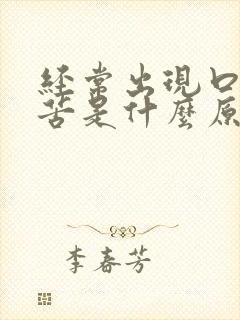 經常出現口
苦是什麼原
李春芳